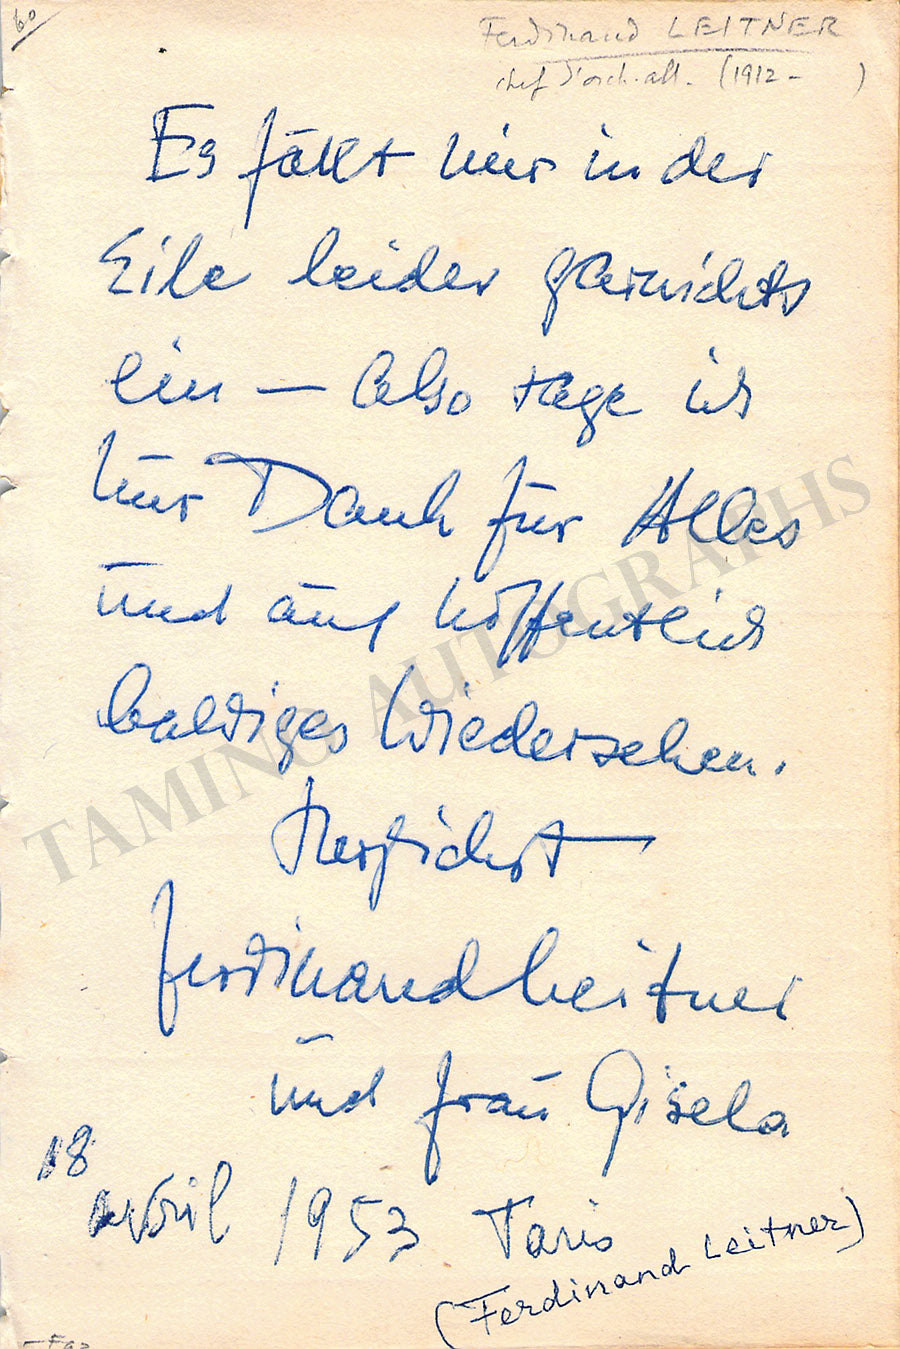 60
Ferdinand LEITNER
chef d'orch. all. (1912 - )
Es fällt mir in der
Eile leider garnichts
ein — also sage ich
nur Dank für Alles
und auf hoffentlich
baldiges Wiedersehen.
Herzlichst
Ferdinand Leitner
und Frau Gisela
18
avril 1953 Paris
(Ferdinand Leitner)
TAMINO AUTOGRAPHS